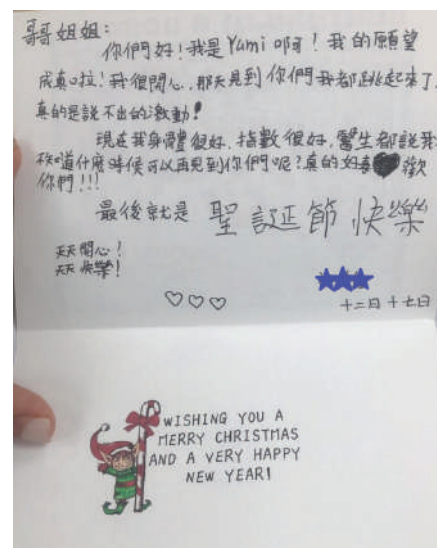 哥哥姐姐:
你們好!我是Yumi啊!我的願望
成真啦!我很開心,那天見到你們我都跳起來了,
真的是說不出的激動!
現在我身體很好,指數很好,醫生都說我
什麼時候可以再見到你們呢?真的好喜歡
你們!!!
最後就是 聖誕節快樂
天天開心!
天天快樂!
十二月十七日
WISHING YOU A
MERRY CHRISTMAS
AND A VERY HAPPY
NEW YEAR!